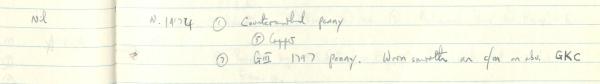 Nil N. 1974 ① Countermarked penny
⑤ Copper
② GIII 1797 penny. Worn smooth on c/m on obv. GKC